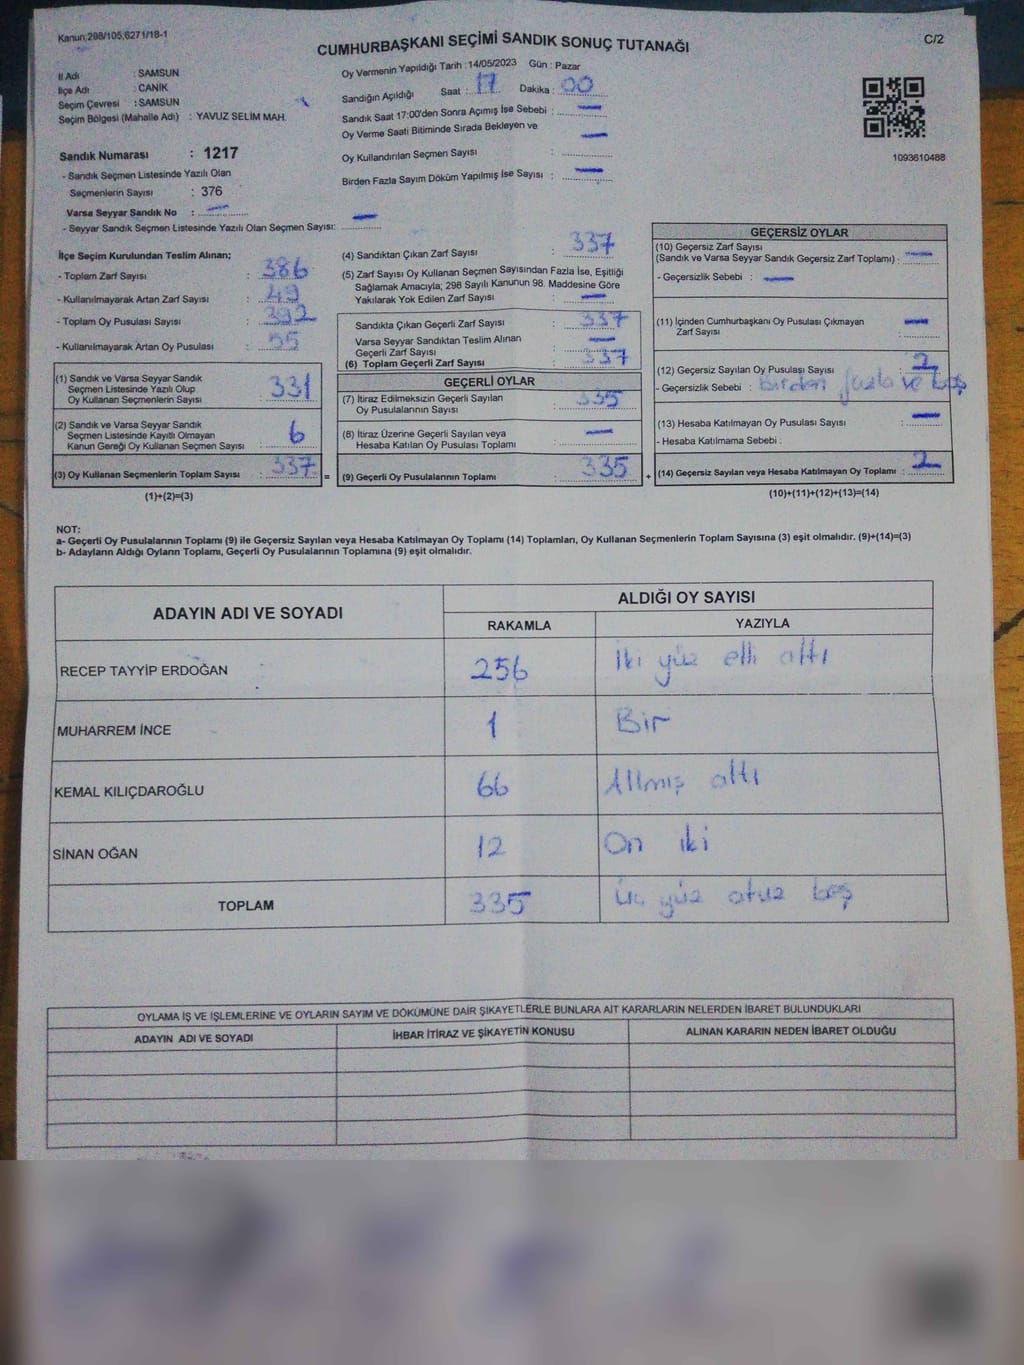 Kanun:298/105,6271/18-1
C/2
CUMHURBAŞKANI SEÇİMİ SANDIK SONUÇ TUTANAĞI
İl Adı : SAMSUN
İlçe Adı : CANİK
Seçim Çevresi : SAMSUN
Seçim Bölgesi (Mahalle Adı) : YAVUZ SELİM MAH.
Sandık Numarası : 1217
- Sandık Seçmen Listesinde Yazılı Olan
Seçmenlerin Sayısı : 376
Varsa Seyyar Sandık No : —
- Seyyar Sandık Seçmen Listesinde Yazılı Olan Seçmen Sayısı: —
Oy Vermenin Yapıldığı Tarih : 14/05/2023 Gün : Pazar
Sandığın Açıldığı Saat : 17 Dakika : 00
Sandık Saat 17:00'den Sonra Açımış İse Sebebi : —
Oy Verme Saati Bitiminde Sırada Bekleyen ve —
Oy Kullandırılan Seçmen Sayısı :
Birden Fazla Sayım Döküm Yapılmış İse Sayısı : —
1093610488
İlçe Seçim Kurulundan Teslim Alınan;
- Toplam Zarf Sayısı : 386
- Kullanılmayarak Artan Zarf Sayısı : 49
- Toplam Oy Pusulası Sayısı : 392
- Kullanılmayarak Artan Oy Pusulası : 55
(1) Sandık ve Varsa Seyyar Sandık
Seçmen Listesinde Yazılı Olup
Oy Kullanan Seçmenlerin Sayısı : 331
(2) Sandık ve Varsa Seyyar Sandık
Seçmen Listesinde Kayıtlı Olmayan
Kanun Gereği Oy Kullanan Seçmen Sayısı : 6
(3) Oy Kullanan Seçmenlerin Toplam Sayısı : 337 =
(1)+(2)=(3)
(4) Sandıktan Çıkan Zarf Sayısı : 337
(5) Zarf Sayısı Oy Kullanan Seçmen Sayısından Fazla İse, Eşitliği
Sağlamak Amacıyla; 298 Sayılı Kanunun 98. Maddesine Göre
Yakılarak Yok Edilen Zarf Sayısı : —
Sandıkta Çıkan Geçerli Zarf Sayısı : 337
Varsa Seyyar Sandıktan Teslim Alınan —
Geçerli Zarf Sayısı :
(6) Toplam Geçerli Zarf Sayısı : 337
GEÇERLİ OYLAR
(7) İtiraz Edilmeksizin Geçerli Sayılan : 335
Oy Pusulalarının Sayısı
(8) İtiraz Üzerine Geçerli Sayılan veya : —
Hesaba Katılan Oy Pusulası Toplamı
(9) Geçerli Oy Pusulalarının Toplamı : 335 +
GEÇERSİZ OYLAR
(10) Geçersiz Zarf Sayısı
(Sandık ve Varsa Seyyar Sandık Geçersiz Zarf Toplamı) : —
- Geçersizlik Sebebi : —
(11) İçinden Cumhurbaşkanı Oy Pusulası Çıkmayan —
Zarf Sayısı :
(12) Geçersiz Sayılan Oy Pusulası Sayısı : 2
- Geçersizlik Sebebi : birden fazla ve boş
(13) Hesaba Katılmayan Oy Pusulası Sayısı : —
- Hesaba Katılmama Sebebi :
(14) Geçersiz Sayılan veya Hesaba Katılmayan Oy Toplamı : 2
(10)+(11)+(12)+(13)=(14)
NOT:
a- Geçerli Oy Pusulalarının Toplamı (9) ile Geçersiz Sayılan veya Hesaba Katılmayan Oy Toplamı (14) Toplamları, Oy Kullanan Seçmenlerin Toplam Sayısına (3) eşit olmalıdır. (9)+(14)=(3)
b- Adayların Aldığı Oyların Toplamı, Geçerli Oy Pusulalarının Toplamına (9) eşit olmalıdır.
ADAYIN ADI VE SOYADI ALDIĞI OY SAYISI
RAKAMLA YAZIYLA
RECEP TAYYİP ERDOĞAN 256 İki yüz elli altı
MUHARREM İNCE 1 Bir
KEMAL KILIÇDAROĞLU 66 Altmış altı
SİNAN OĞAN 12 On iki
TOPLAM 335 üç yüz otuz beş
OYLAMA İŞ VE İŞLEMLERİNE VE OYLARIN SAYIM VE DÖKÜMÜNE DAİR ŞİKAYETLERLE BUNLARA AİT KARARLARIN NELERDEN İBARET BULUNDUKLARI
ADAYIN ADI VE SOYADI İHBAR İTİRAZ VE ŞİKAYETİN KONUSU ALINAN KARARIN NEDEN İBARET OLDUĞU